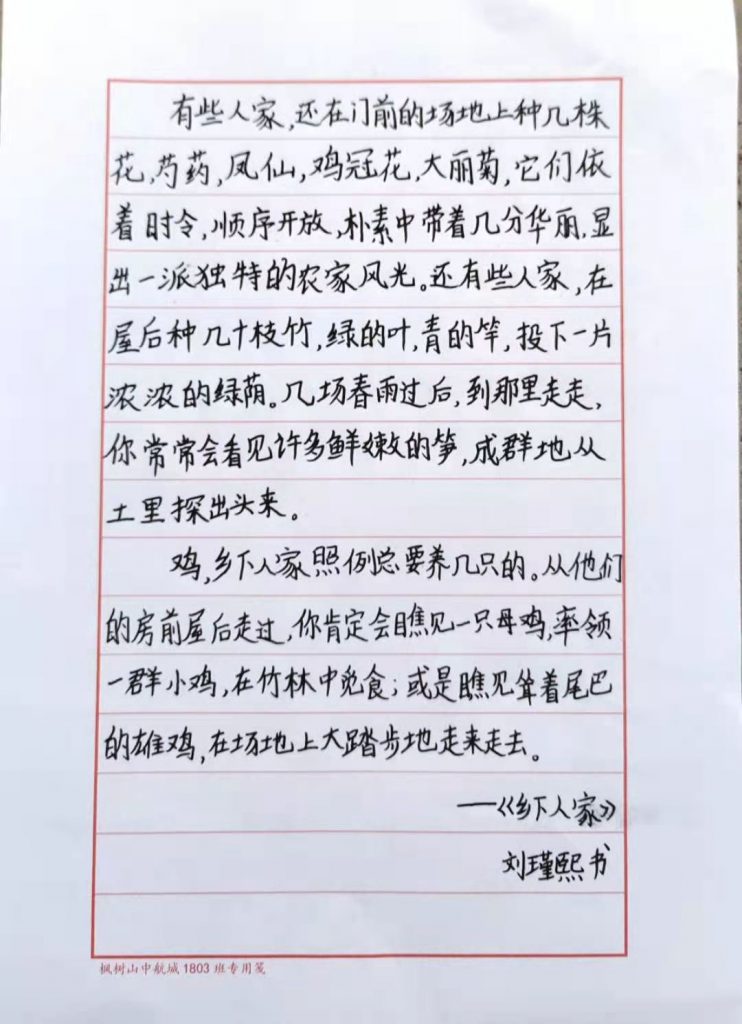 有些人家,还在门前的场地上种几株
花,芍药,凤仙,鸡冠花,大丽菊,它们依
着时令,顺序开放,朴素中带着几分华丽,显
出一派独特的农家风光。还有些人家,在
屋后种几十枝竹,绿的叶,青的竿,投下一片
浓浓的绿荫。几场春雨过后,到那里走走,
你常常会看见许多鲜嫩的笋,成群地从
土里探出头来。
鸡,乡下人家照例总要养几只的。从他们
的房前屋后走过,你肯定会瞧见一只母鸡,率领
一群小鸡,在竹林中觅食;或是瞧见耸着尾巴
的雄鸡,在场地上大踏步地走来走去。
——《乡下人家》
刘瑾熙书
枫树山中航城1803班专用笺